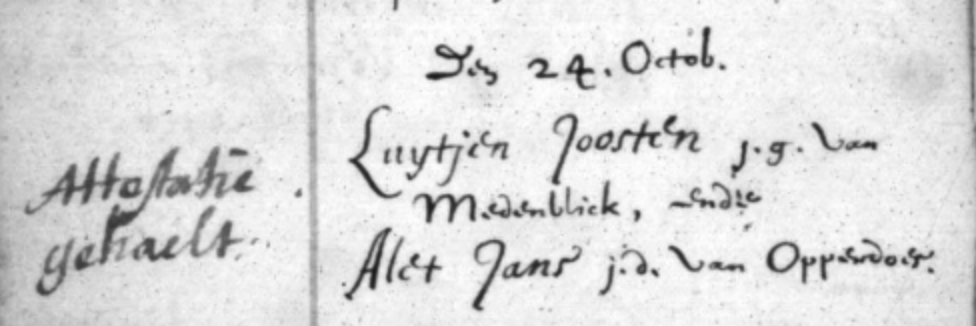 Den 24. Octob.
Luytjen Joosten j.g. van
Attestatie
Medenblick, ende
gehaelt.
Alet Jans j.d. van Opperdoes.